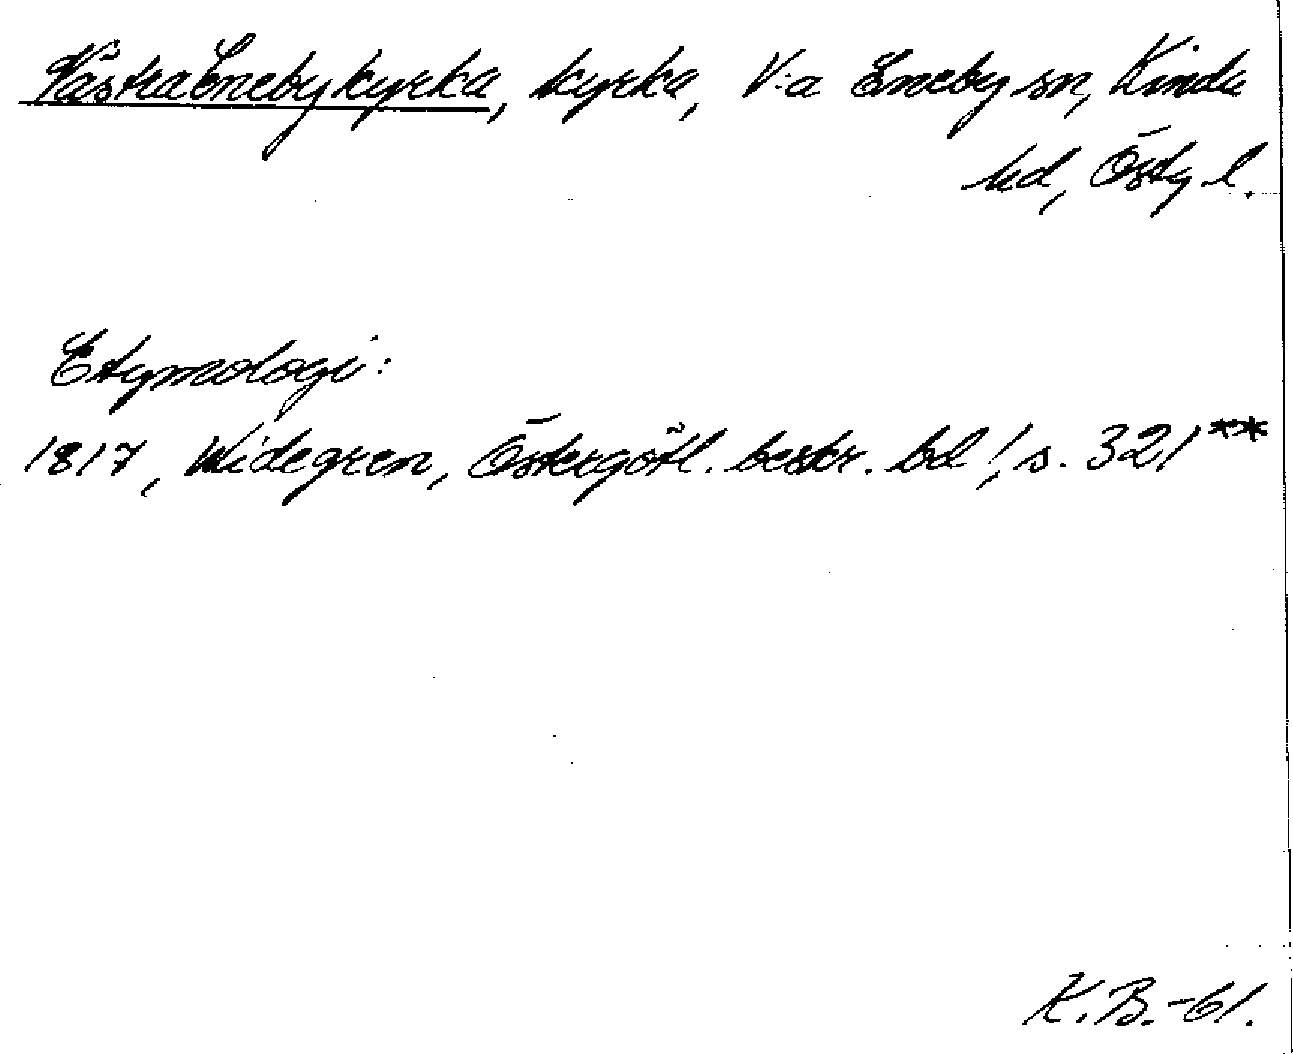 Västra Eneby kyrka, kyrka, V-a Eneby sn, Kinda
hd, Östg l.
Etymologi:
1817, Widegren, Östergötl. beskr. bd 1, s. 321**
K.B.-61.